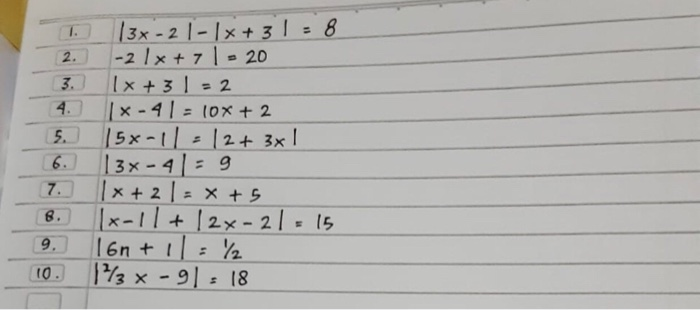 1. |3x - 2| - |x + 3| = 8
2. -2|x + 7| = 20
3. |x + 3| = 2
4. |x - 4| = 10x + 2
5. |5x - 1| = |2 + 3x|
6. |3x - 4| = 9
7. |x + 2| = x + 5
8. |x - 1| + |2x - 2| = 15
9. |6n + 1| = 1/2
10. |2/3 x - 9| = 18